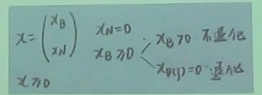 x = (x_B x_N) x_N=0 x_B≥0 x_B>0 不退化
x_B(i)=0 退化
x≥0